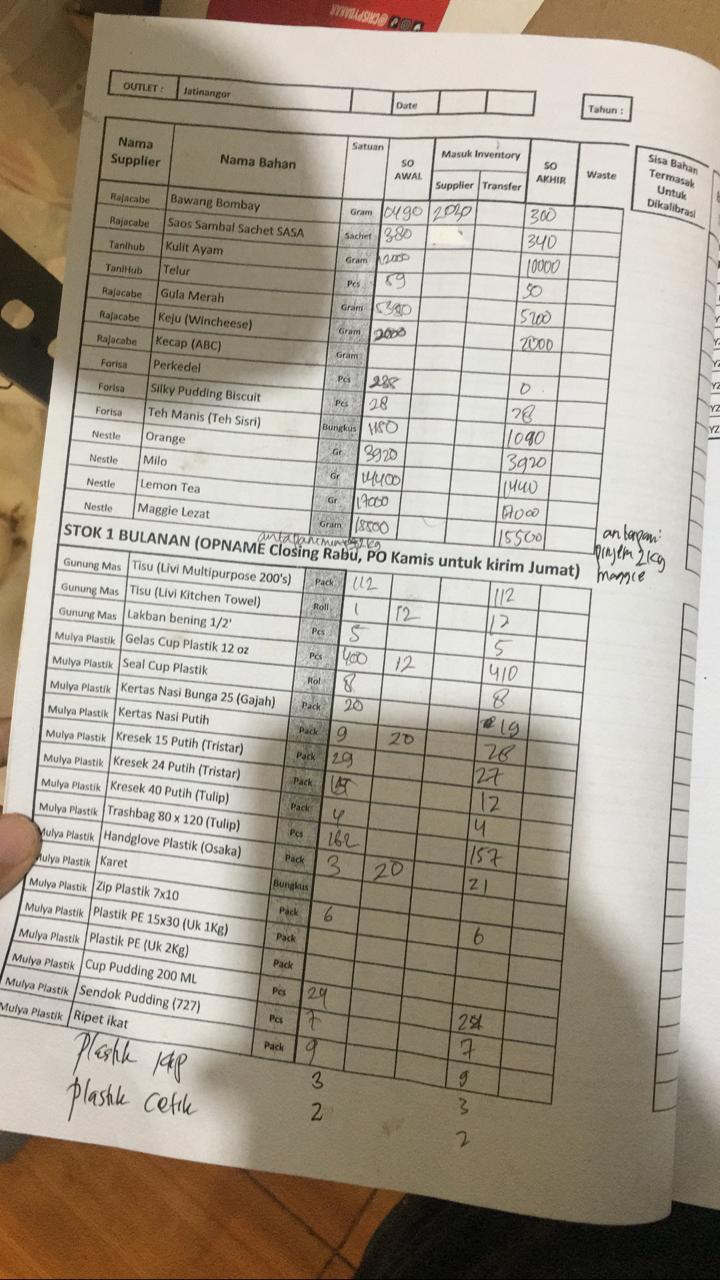 @CRISPYBAKAR
OUTLET : Jatinangor Date Tahun :
Nama Supplier Nama Bahan Satuan SO AWAL Masuk Inventory Supplier Transfer SO AKHIR Waste Sisa Bahan Termasak Untuk Dikalibrasi
Rajacabe Bawang Bombay Gram 0490 2020 300
Rajacabe Saos Sambal Sachet SASA Sachet 380 340
Tanihub Kulit Ayam Gram 12000 10000
TaniHub Telur Pcs 59 50
Rajacabe Gula Merah Gram 5390 5200
Rajacabe Keju (Wincheese) Gram 2000 2000
Rajacabe Kecap (ABC) Gram
Forisa Perkedel Pcs 288 0
Forisa Silky Pudding Biscuit Pcs 28 28
Forisa Teh Manis (Teh Sisri) Bungkus 1180 1090
Nestle Orange Gr 3920 3920
Nestle Milo Gr 14400 1440
Nestle Lemon Tea Gr 17000 17000
Nestle Maggie Lezat Gram 18500 15500
antapani: pinjem 2kg maggie
STOK 1 BULANAN (OPNAME Closing Rabu, PO Kamis untuk kirim Jumat)
Gunung Mas Tisu (Livi Multipurpose 200's) Pack 112 112
Gunung Mas Tisu (Livi Kitchen Towel) Roll 1 12 12
Gunung Mas Lakban bening 1/2' Pcs 5 5
Mulya Plastik Gelas Cup Plastik 12 oz Pcs 400 12 410
Mulya Plastik Seal Cup Plastik Rol 8 8
Mulya Plastik Kertas Nasi Bunga 25 (Gajah) Pack 20 19
Mulya Plastik Kertas Nasi Putih Pack 9 20 28
Mulya Plastik Kresek 15 Putih (Tristar) Pack 29 27
Mulya Plastik Kresek 24 Putih (Tristar) Pack 12
Mulya Plastik Kresek 40 Putih (Tulip) Pack 4 4
Mulya Plastik Trashbag 80 x 120 (Tulip) Pcs 162 157
Mulya Plastik Handglove Plastik (Osaka) Pack 3 20 21
Mulya Plastik Karet Bungkus
Mulya Plastik Zip Plastik 7x10 Pack 6 6
Mulya Plastik Plastik PE 15x30 (Uk 1Kg) Pack
Mulya Plastik Plastik PE (Uk 2Kg) Pack
Mulya Plastik Cup Pudding 200 ML Pcs 29
Mulya Plastik Sendok Pudding (727) Pcs 7 7
Mulya Plastik Ripet ikat Pack 9 9
Plastik 3 3
Plastik cetik 2 2